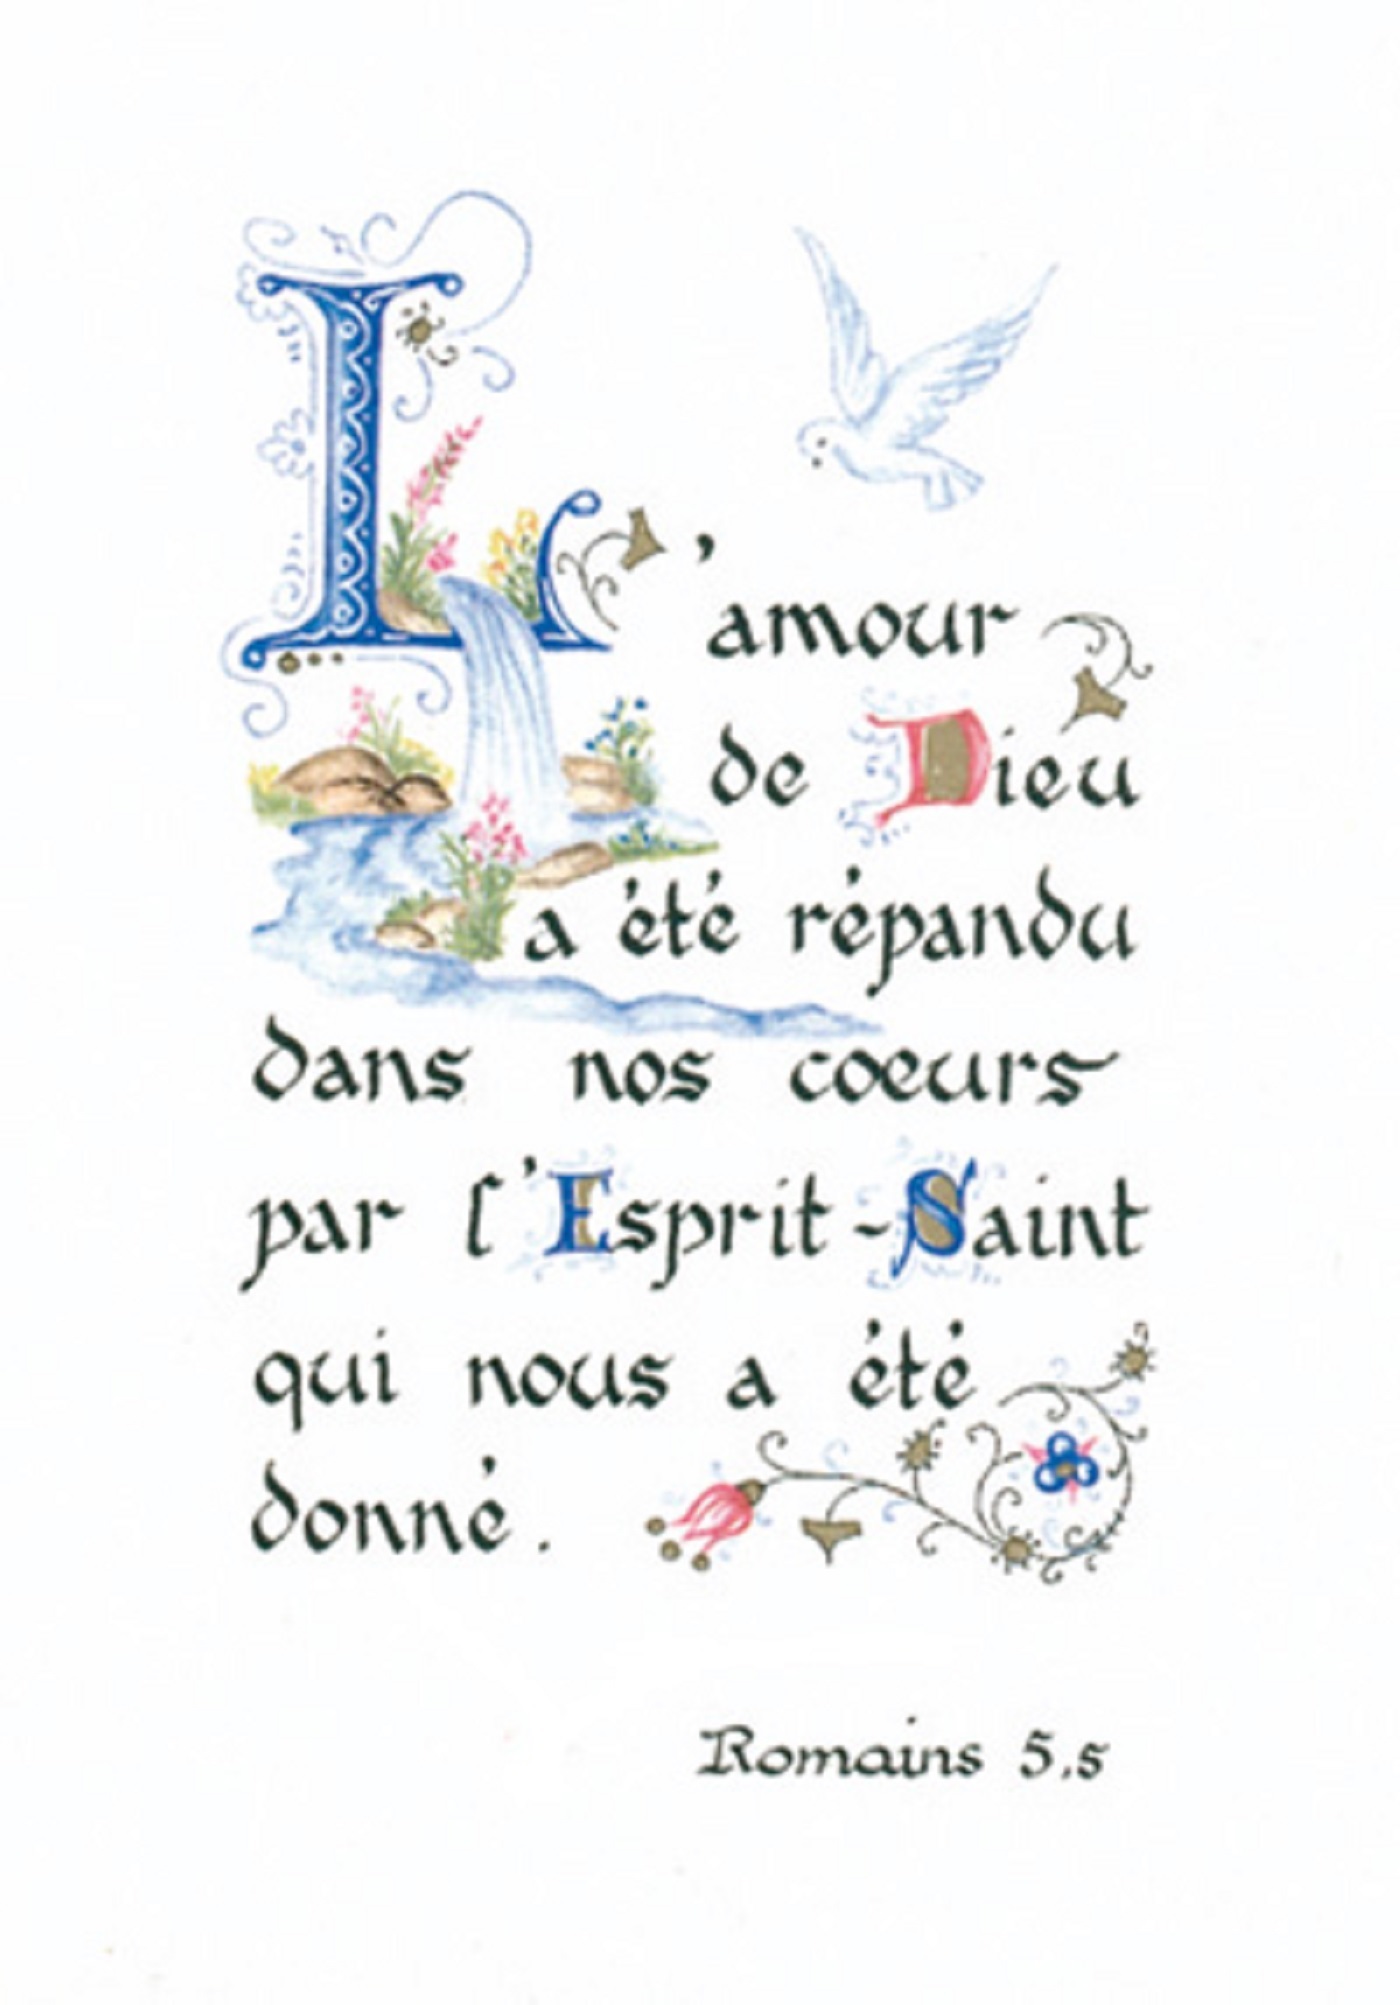 L'amour
de Dieu
a été répandu
dans nos cœurs
par l'Esprit-Saint
qui nous a été
donné.
Romains 5.5